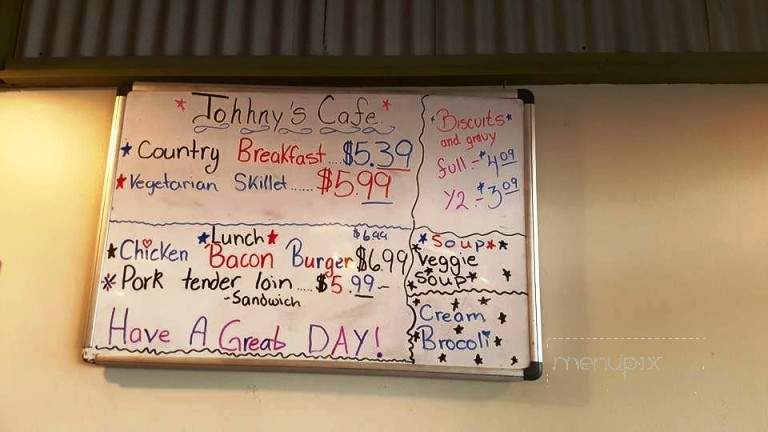 Johhny's Cafe
Country Breakfast...$5.39
Vegetarian Skillet......$5.99
Biscuits
and gravy
full - $4.09
1/2 - $3.09
Lunch
$6.99
Chicken Bacon Burger $6.99
Pork tender loin.....$5.99-
-Sandwich
Have A Great DAY!
Soup
Veggie
Soup
Cream
Brocoli
menupix